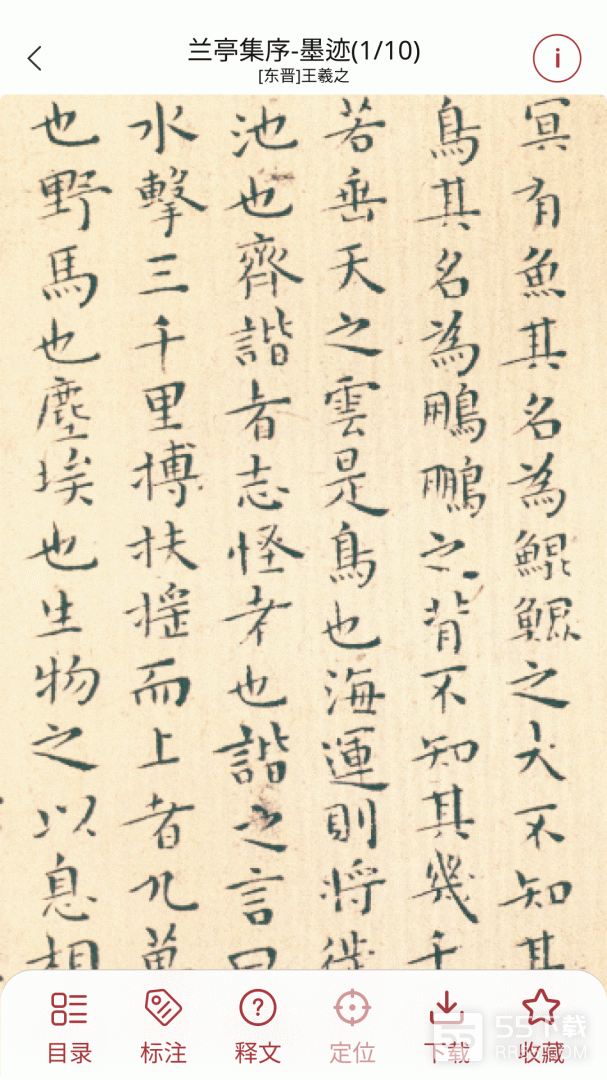 兰亭集序-墨迹(1/10)
[东晋]王羲之
i
冥有魚其名為鯤鯤之大不知其
鳥其名為鵬鵬之背不知其幾千
若垂天之雲是鳥也海運則將徙
池也齊諧者志怪者也諧之言曰
水擊三千里搏扶搖而上者九萬
也野馬也塵埃也生物之以息相
目录 标注 释文 定位 下载 收藏
55下载